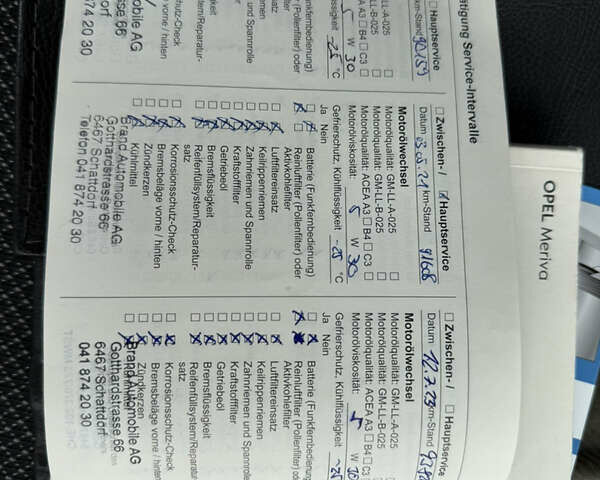 ätigung Service-Intervalle
Hauptservice
km-Stand 90159
GM-LL-A-025
LL-B-025
A A3 B4 C3
5 W 30
üssigkeit -25 °C
Funkfernbedienung)
Pollenfilter) oder
und Spannrolle
stem/Reparatur-
sschutz-Check
vorne / hinten
mobile AG
strasse 66
dorf
874 20 30
Zwischen- / Hauptservice
Datum km-Stand 91608
Motorölwechsel
Motorölqualität: GM-LL-A-025
Motorölqualität: GM-LL-B-025
Motorölqualität: ACEA A3 B4 C3
Motorölviskosität: 5 W 30
Gefrierschutz, Kühlflüssigkeit -25 °C
Ja Nein
Batterie (Funkfernbedienung)
Reinluftfilter (Pollenfilter) oder
Aktivkohlefilter
Luftfiltereinsatz
Keilrippenriemen
Zahnriemen und Spannrolle
Kraftstofffilter
Getriebeöl
Bremsflüssigkeit
Reifenfüllsystem/Reparatur-
satz
Korrosionsschutz-Check
Bremsbeläge vorne / hinten
Zündkerzen
Kühlmittel
Brand Automobile AG
Gotthardstrasse 66
6467 Schattdorf
Telefon 041 874 20 30
Zwischen- / Hauptservice
Datum 12.7.23 km-Stand
Motorölwechsel
Motorölqualität: GM-LL-A-025
Motorölqualität: GM-LL-B-025
Motorölqualität: ACEA A3 B4 C3
Motorölviskosität: 5 W 30
Gefrierschutz, Kühlflüssigkeit
Ja Nein
Batterie (Funkfernbedienung
Reinluftfilter (Pollenfilter) od
Aktivkohlefilter
Luftfiltereinsatz
Keilrippenriemen
Zahnriemen und Spannrolle
Kraftstofffilter
Getriebeöl
Bremsflüssigkeit
Reifenfüllsystem/Reparatur
satz
Korrosionsschutz-Check
Bremsbeläge vorne / hinten
Zündkerzen
Brand Automobile AG
Gotthardstrasse 66
6467 Schattdorf
041 874 20 30
OPEL Meriva